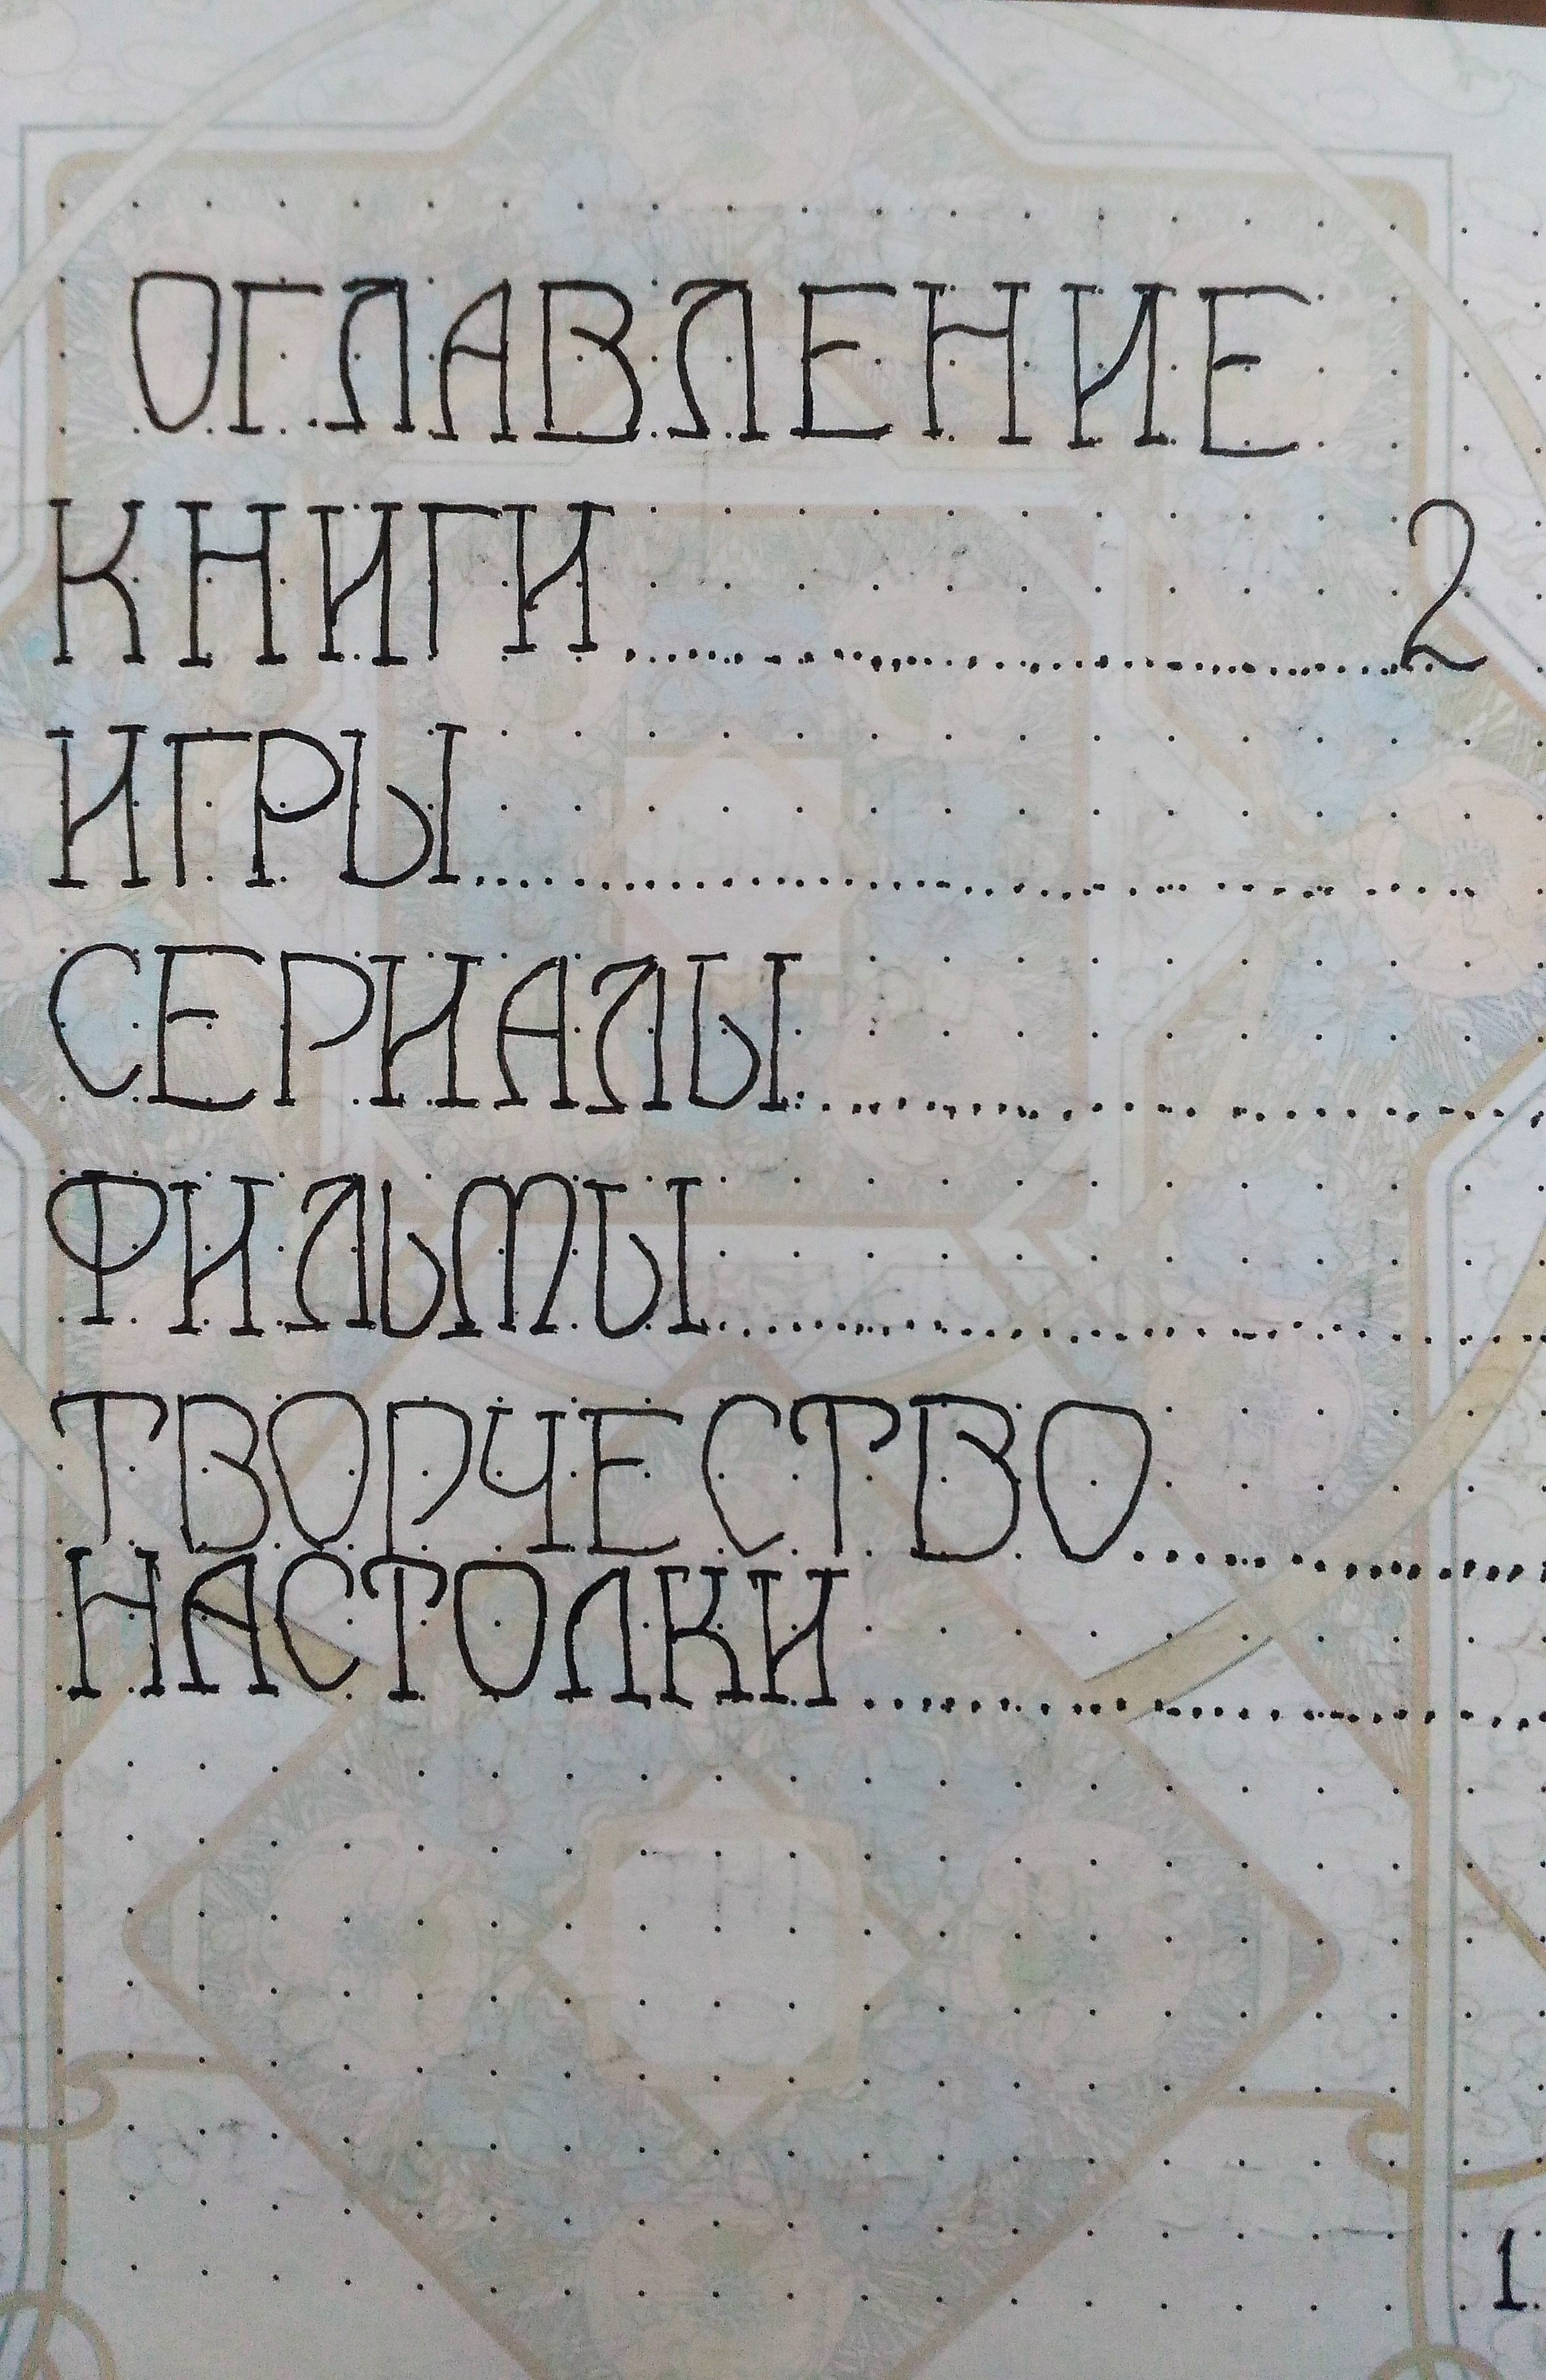 ОГЛАВЛЕНИЕ
КНИГИ..............................2
ИГРЫ..............................
СЕРИАЛЫ..............................
ФИЛЬМЫ..............................
ТВОРЧЕСТВО..............................
НАСТОЛКИ..............................
1